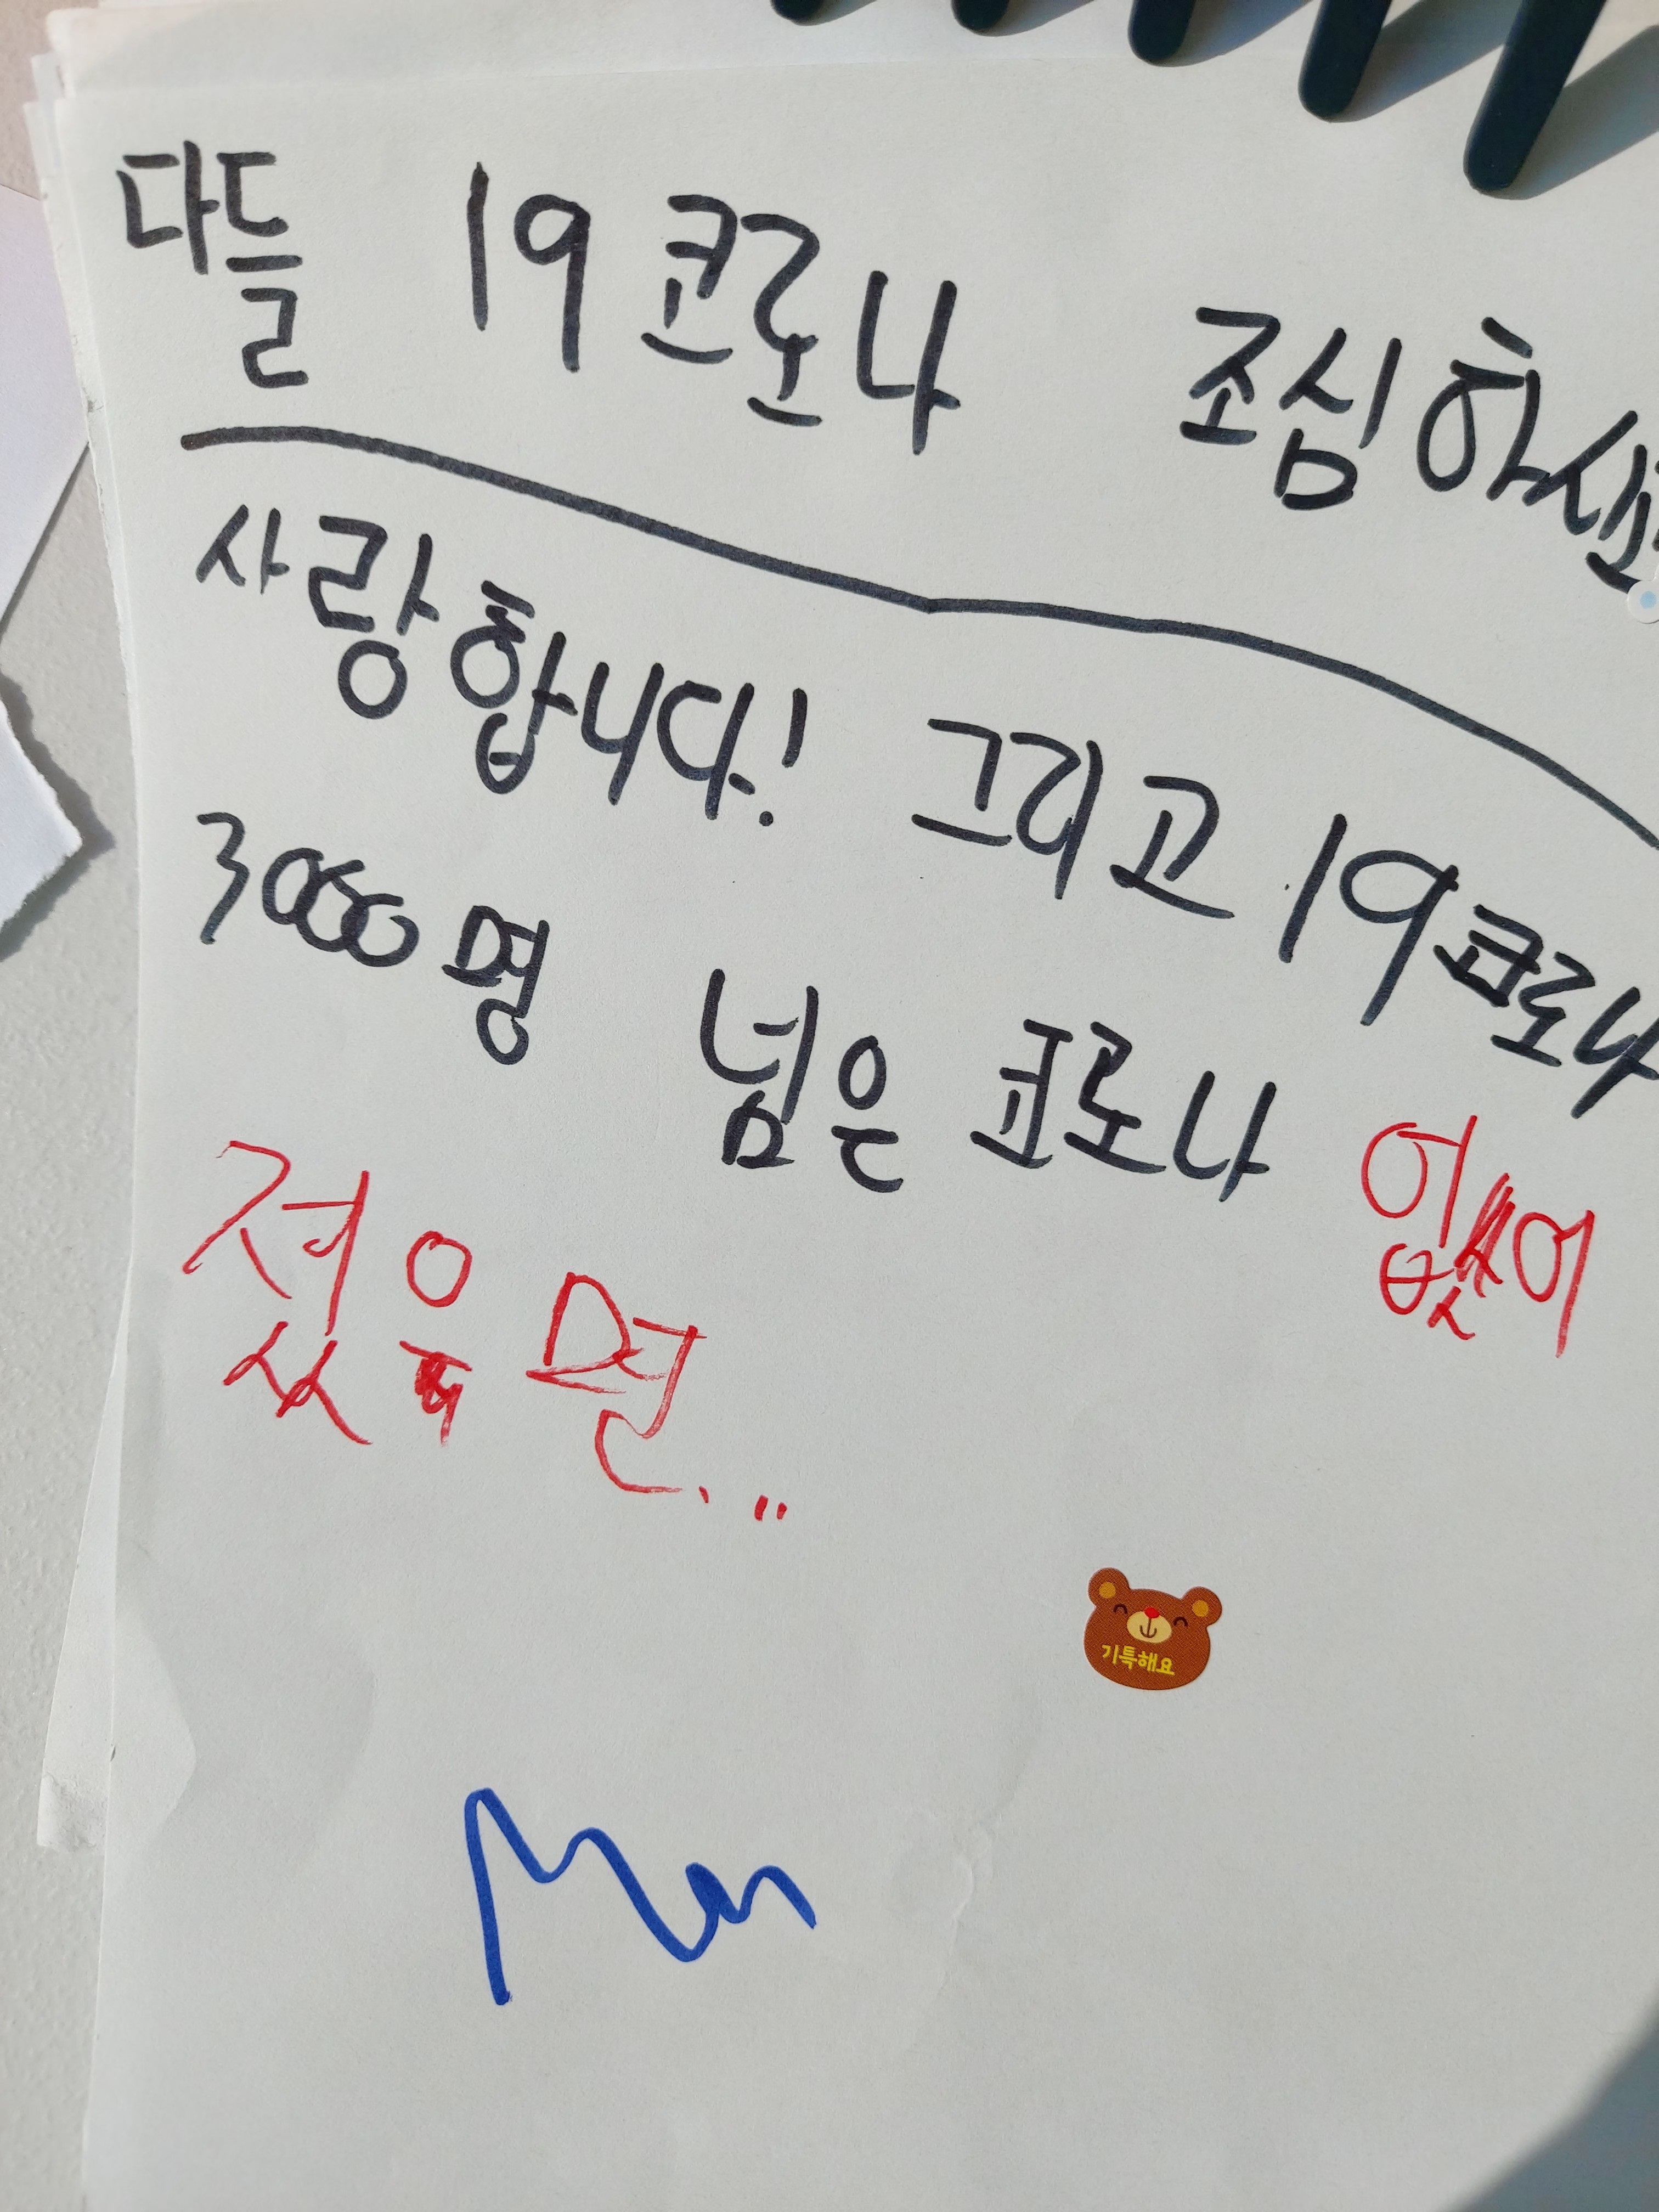 다들 19 코로나 조심하세요
사랑합니다! 그리고 19 코로나
3000명 넘은 코로나 없어
젔으면...
기특해요